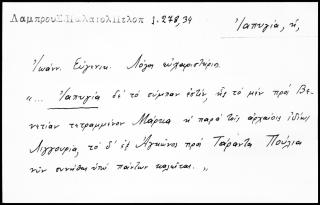 Λαμπρου Σ. Παλαιολ Πελοπ 1.278,34
Ἰαπυγία, ἡ,
Ἰωάνν. Εὐγενικ. Λόγος εὐχαριστήριο.
"... Ἰαπυγία δὲ τὸ σύμπαν ἐστὶν, ἧς τὸ μὲν πρὸς Βε-
νετίαν τετραμμένον Μάρκα ἡ παρὰ τοῖς ἀρχαίοις ἰδίως
Λιγγουρία, τὸ δ' ἐξ Ἀγκῶνος πρὸς Τάραντα Πούλια
νῦν συνήθως ὑπὸ πάντων καλεῖται. „